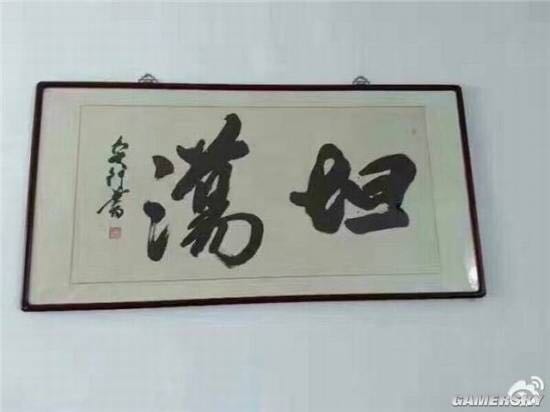 坦蕩
GAMERSKY